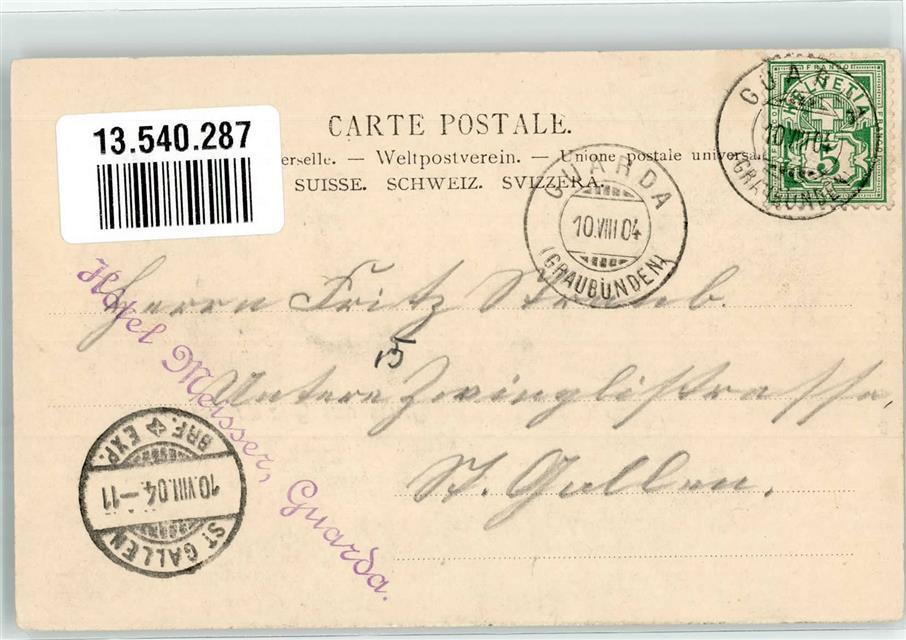 13.540.287
CARTE POSTALE.
erselle. — Weltpostverein. — Unione postale universa
SUISSE. SCHWEIZ. SVIZZERA.
GUARDA
10.VIII 04
(GRAUBÜNDEN)
FRANCO
HELVETIA
5
GUARDA
10.VIII 04
(GRAUBÜNDEN)
Herrn Fritz
15
Untere Zwinglistrasse
St. Gallen.
Hôtel Meisser, Guarda.
ST. GALLEN
10.VIII.04.-11
BRF. EXP.